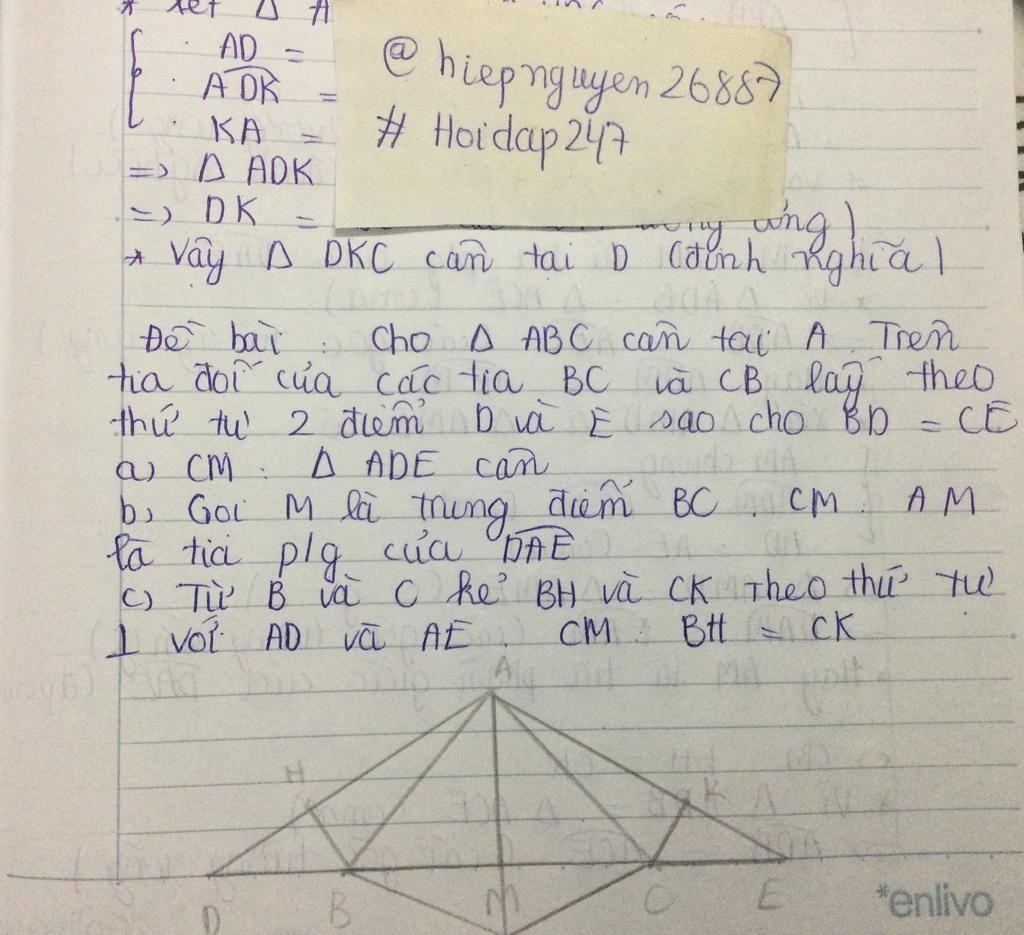 * xét Δ A
AD =
ADK =
KA =
=> Δ ADK
=> DK = ứng)
* Vậy Δ DKC cân tại D (định nghĩa)
@ hiepnguyen26887
# Hoidap247
Đề bài : Cho Δ ABC cân tại A. Trên
tia đối của các tia BC và CB lấy theo
thứ tự 2 điểm D và E sao cho BD = CE
a) CM : Δ ADE cân
b) Gọi M là trung điểm BC. CM : AM
là tia p/g của DAE
c) Từ B và C kẻ BH và CK theo thứ tự
⊥ với AD và AE. CM : BH = CK
A
H K
D B M C E
*enlivo